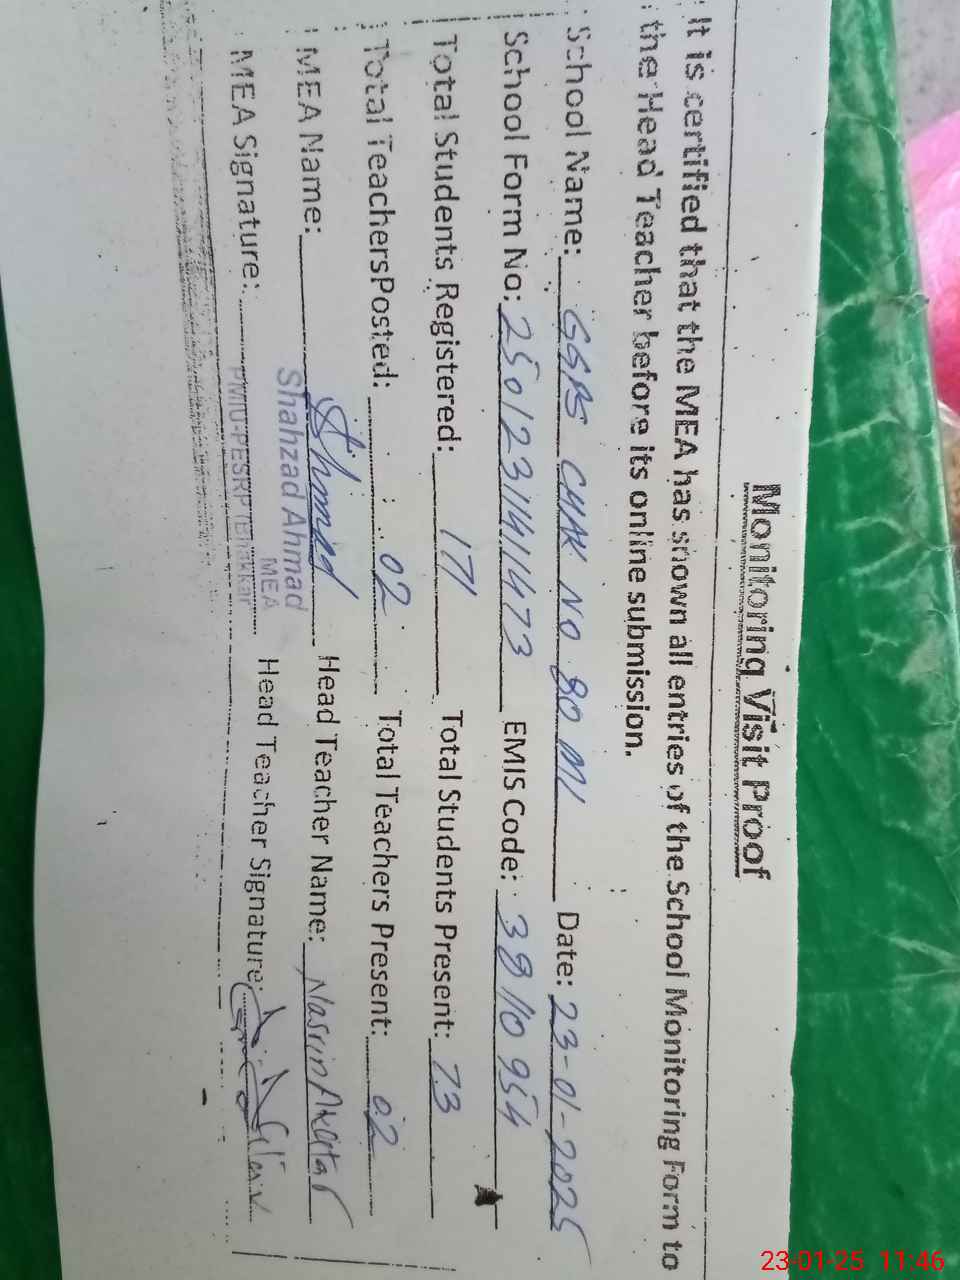 Monitoring Visit Proof
It is certified that the MEA has shown all entries of the School Monitoring Form to
the Head Teacher before its online submission.
School Name: GGPS CHAK NO 80 ML Date: 23-01-2025
School Form No: 25012311411473 EMIS Code: 38110954
Total Students Registered: 171 Total Students Present: 73
Total TeachersPosted: 02 Total Teachers Present: 02
MEA Name: Head Teacher Name: Nasrin Akhtar
Shahzad Ahmad
MEA
MEA Signature: PMIU-PESRP Bhakkar Head Teacher Signature:
23-01-25 11:46